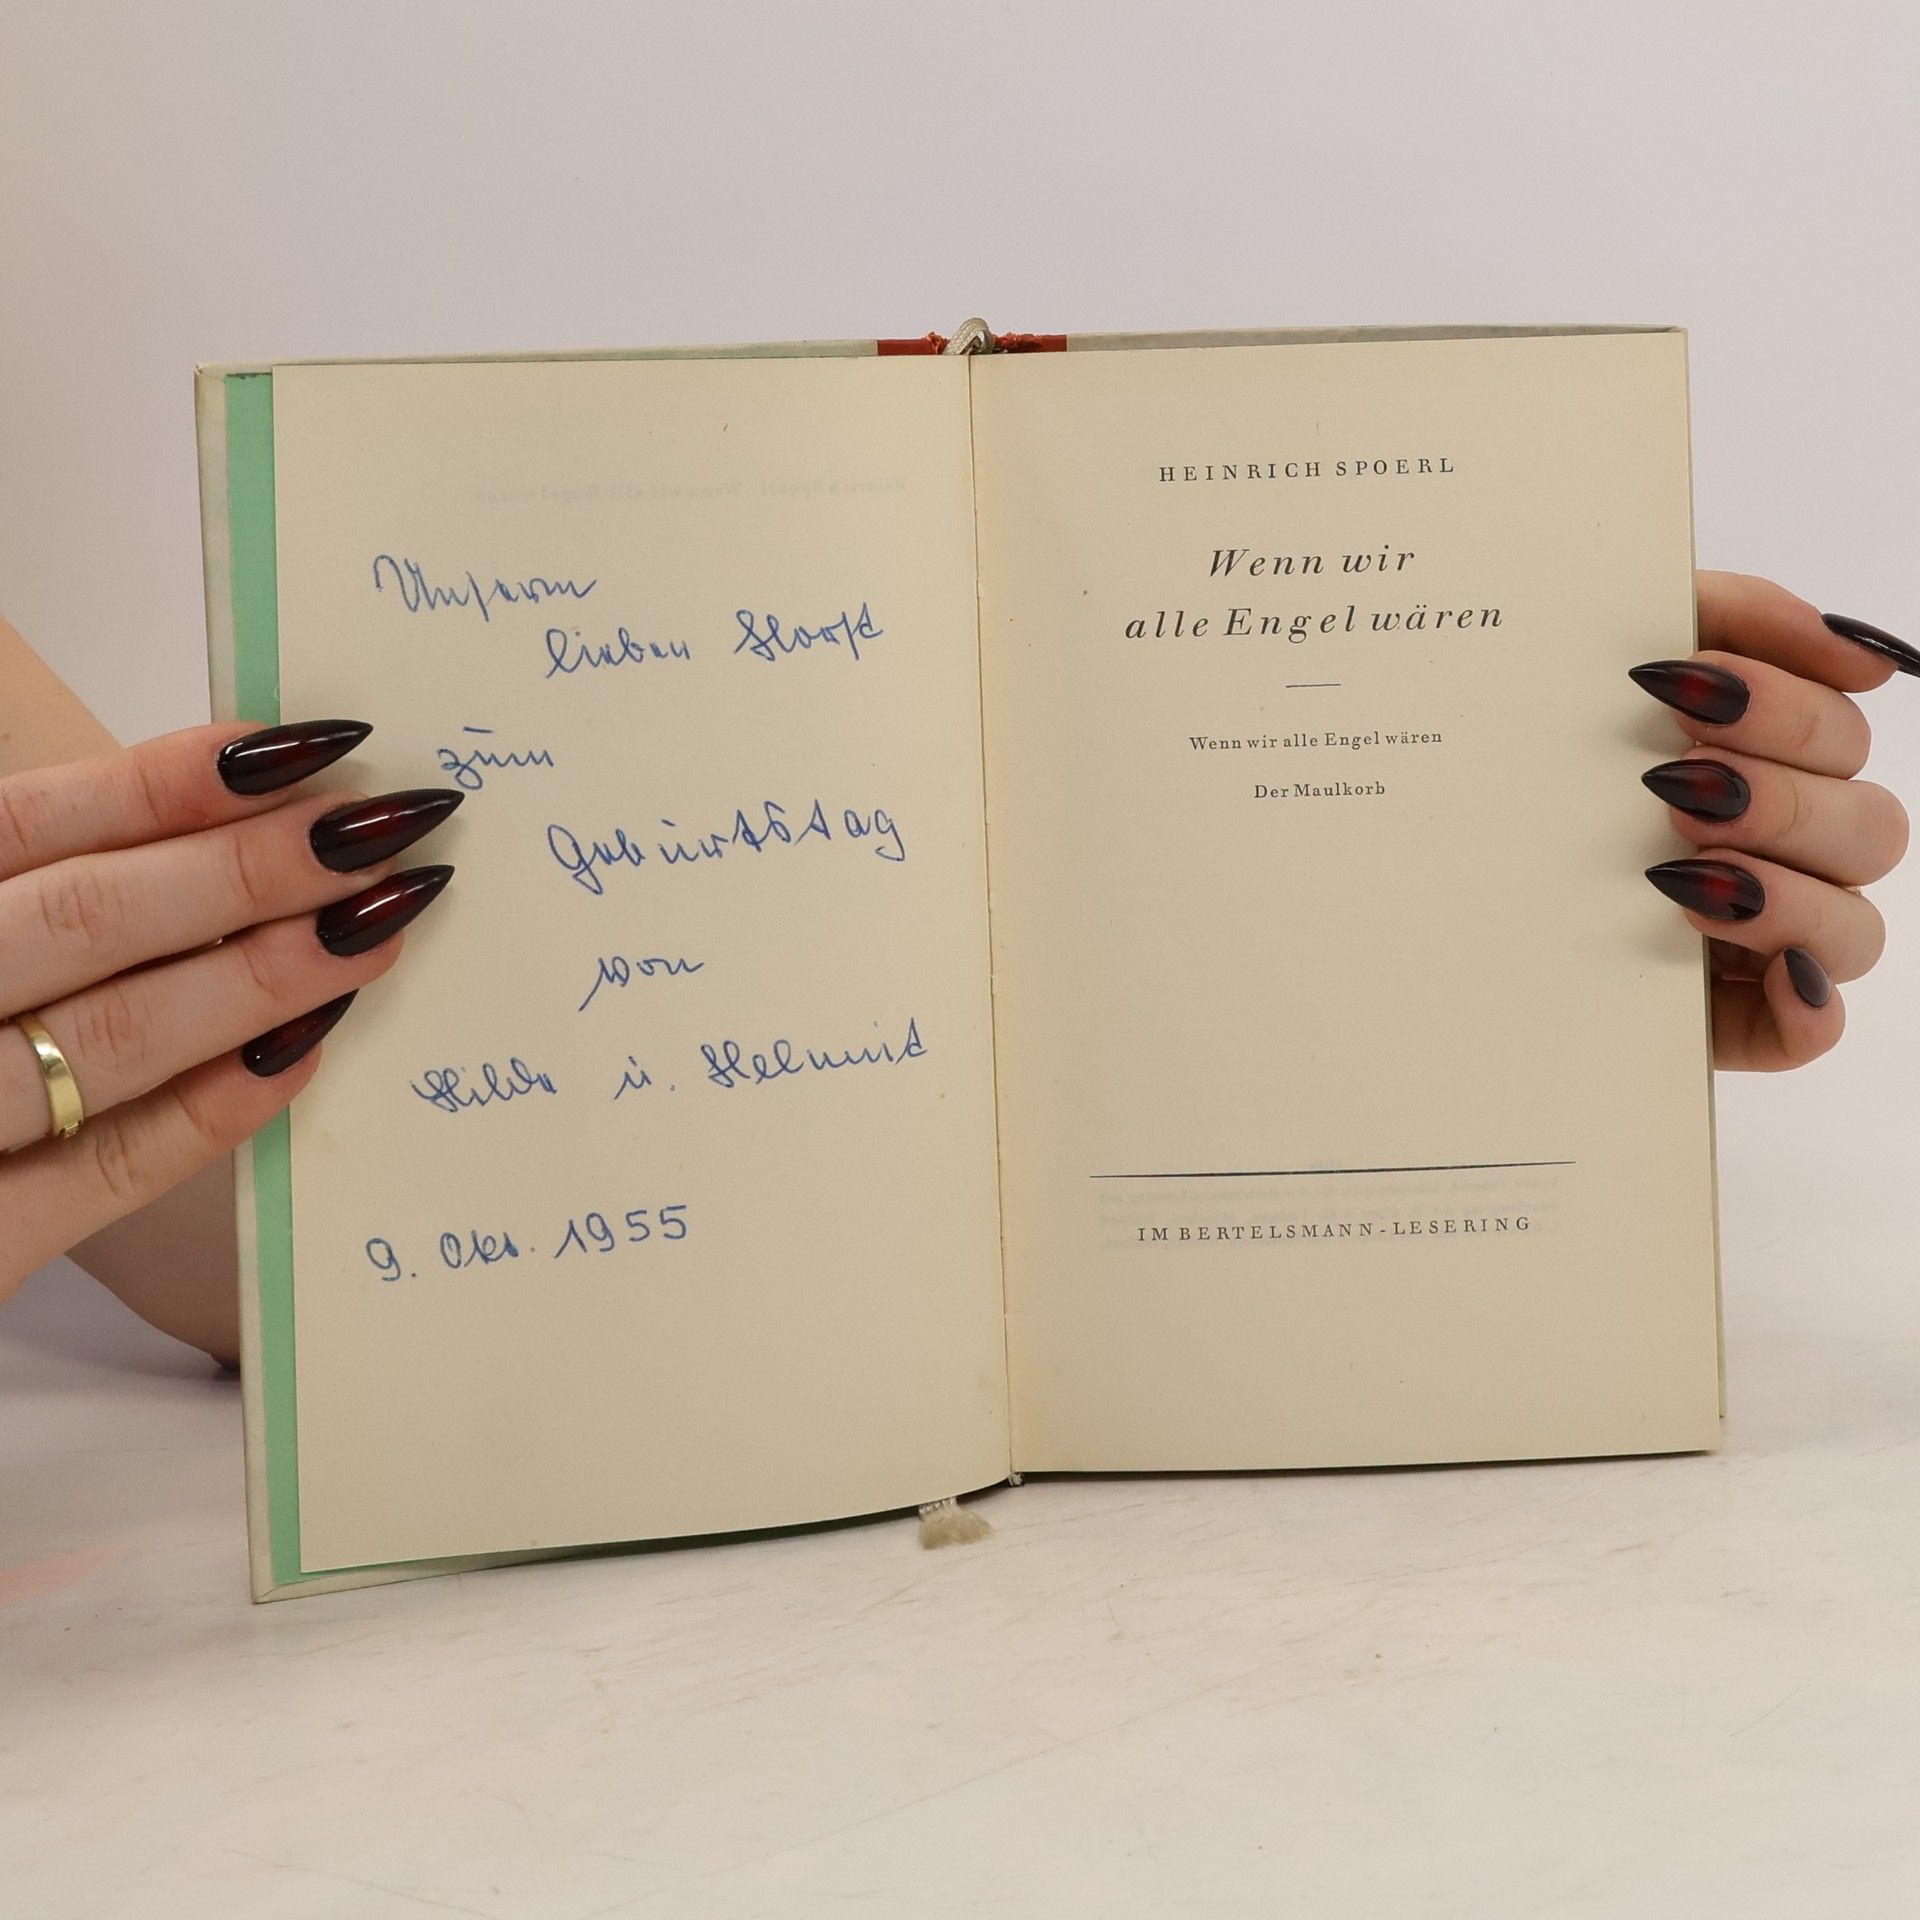 Unserm
lieben Horst
zum
Geburtstag
von
Hilde u. Helmut
9. Okt. 1955
HEINRICH SPOERL
Wenn wir
alle Engel wären
Wenn wir alle Engel wären
Der Maulkorb
IM BERTELSMANN-LESERING